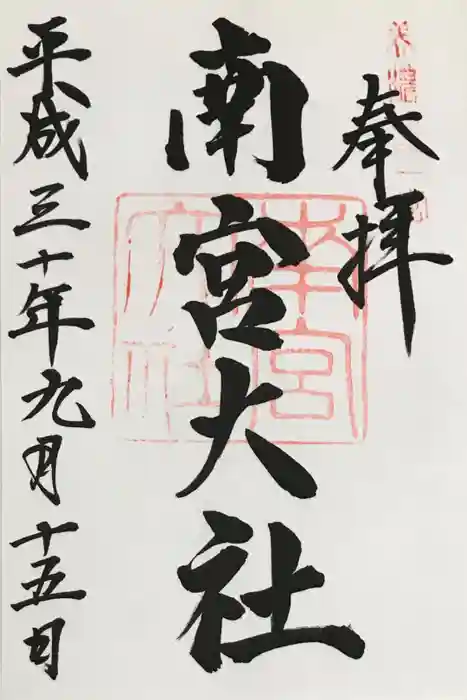 奉拝
南宮大社
南宮
大社
平成三十年九月十五日